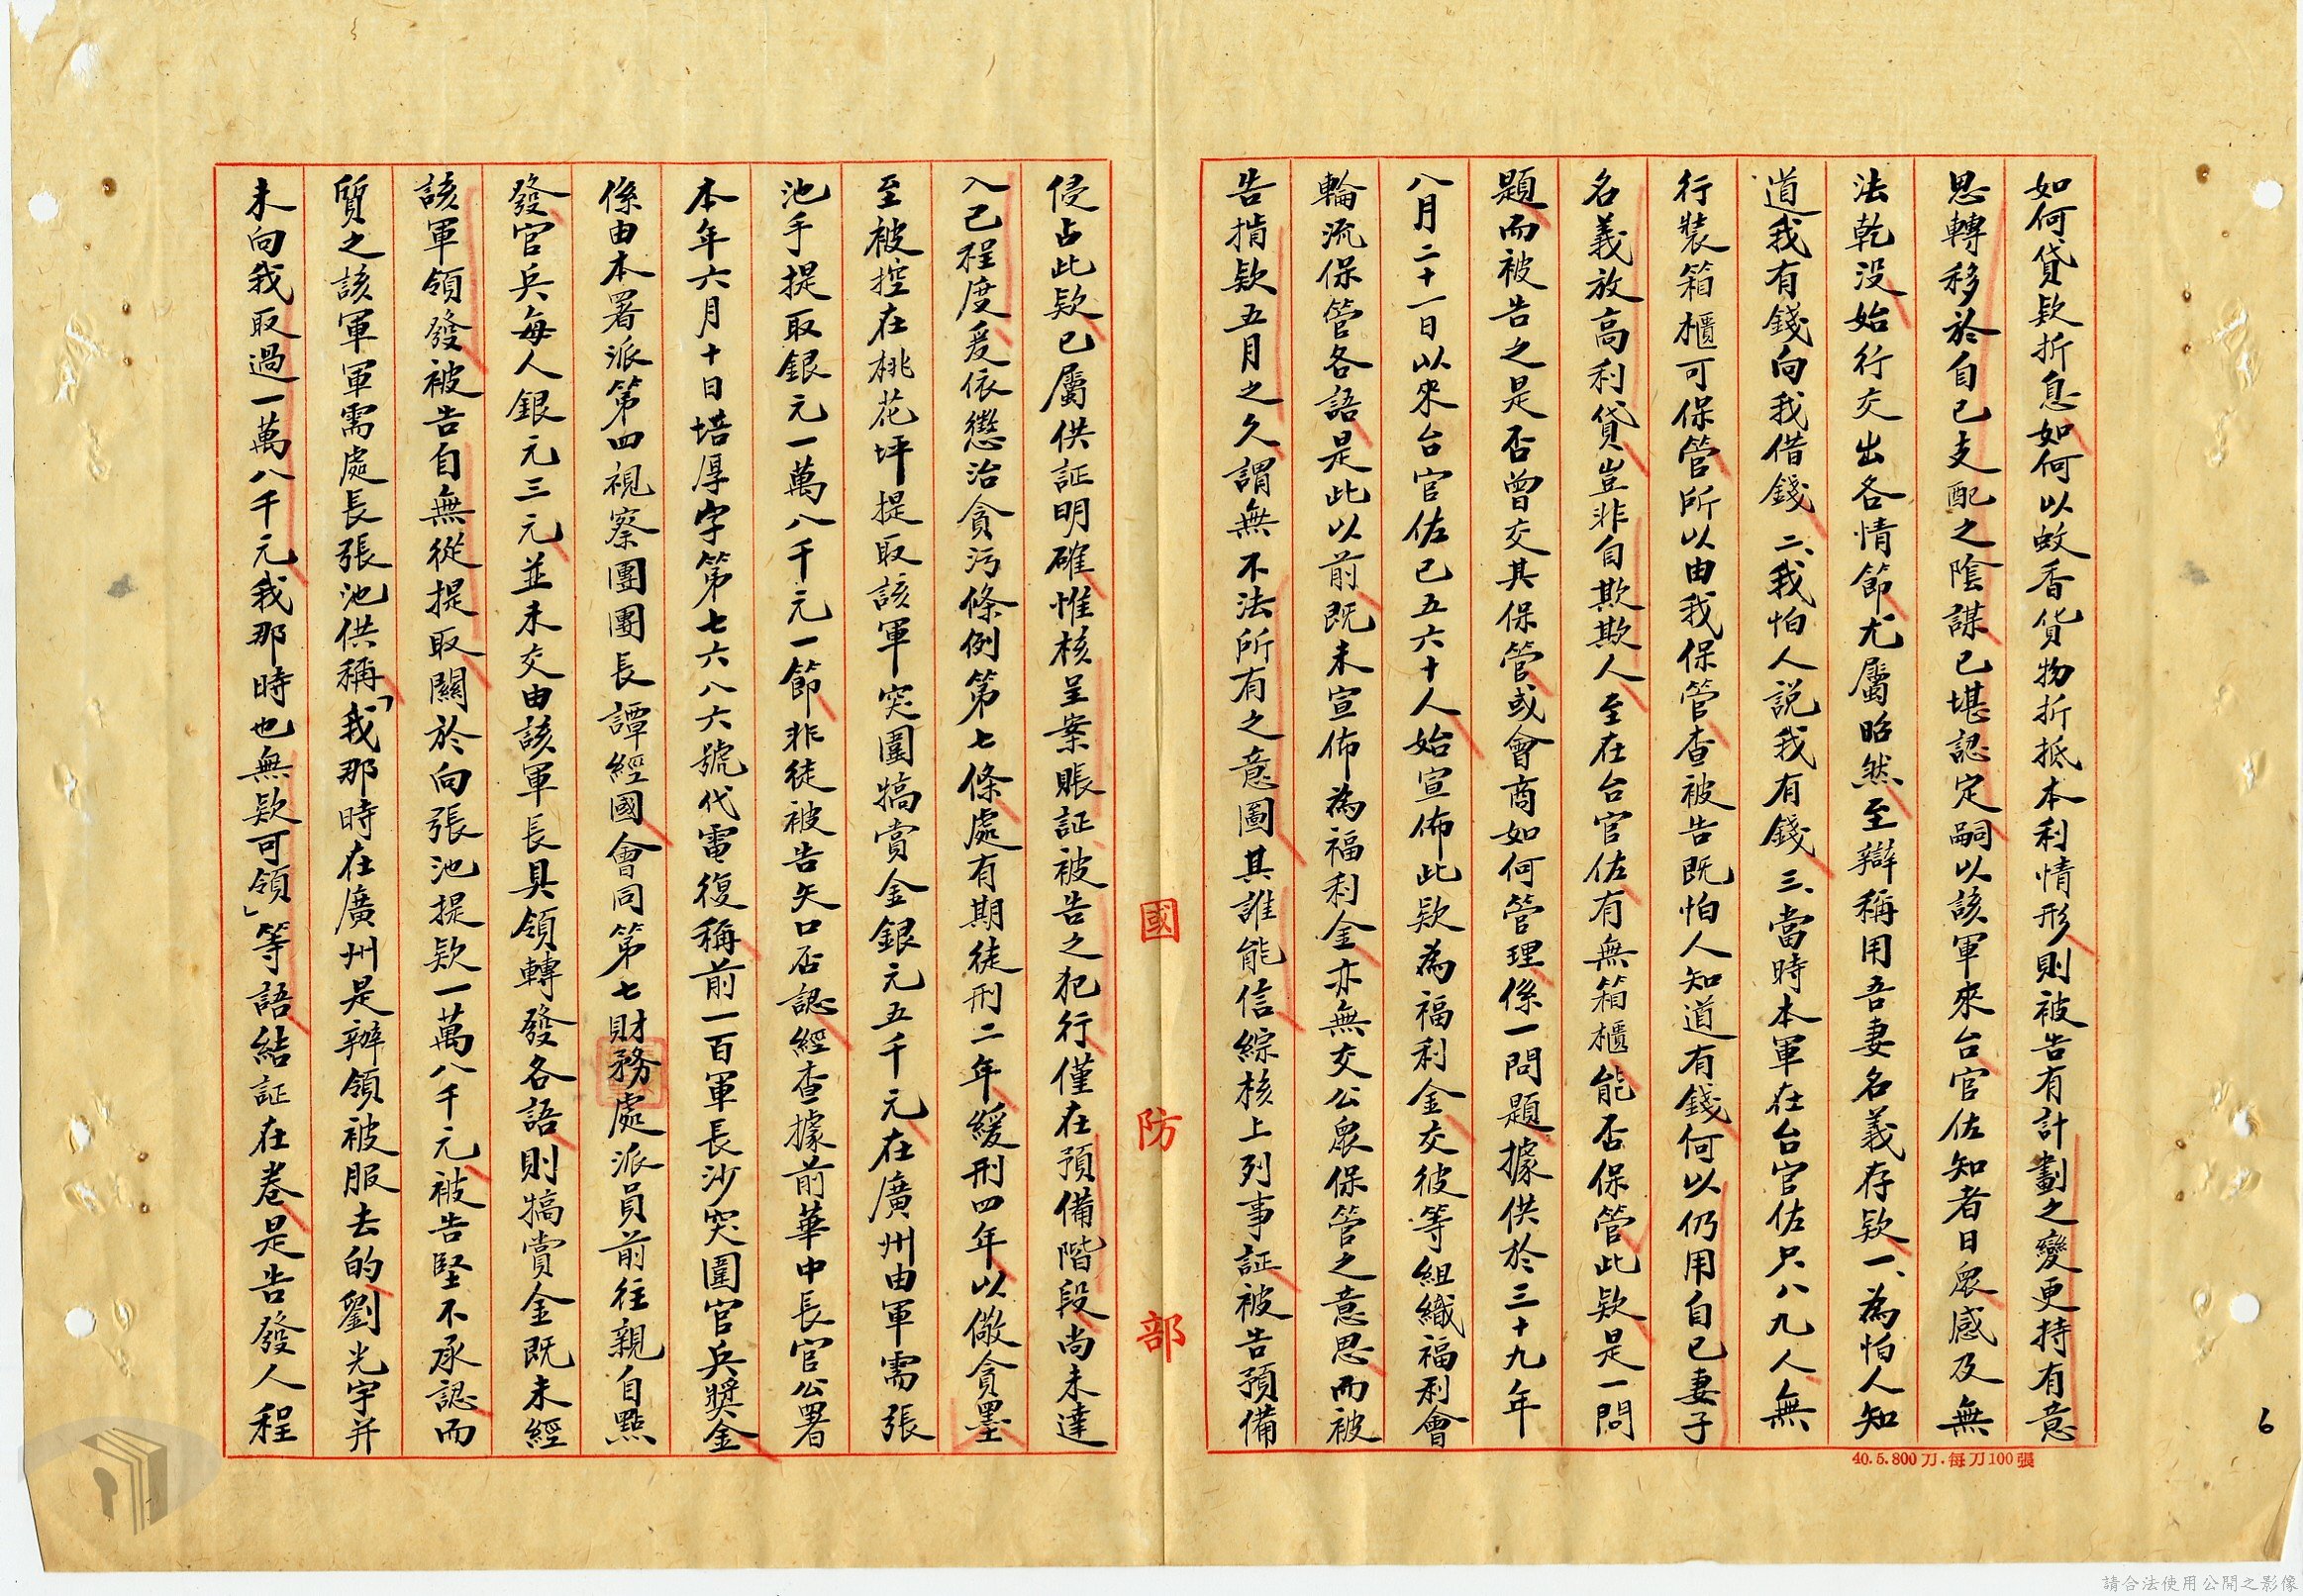 如何貸款折息如何以蚊香貨物折抵本利情形則被告有計劃之變更持有意
思轉移於自己支配之陰謀已堪認定嗣以該軍來台官佐知者日眾感及無
法乾没始行交出各情節尤屬昭然至辯稱用吾妻名義存款一、為怕人知
道我有錢向我借錢 二、我怕人說我有錢 三、當時本軍在台官佐只八九人無
行裝箱櫃可保管所以由我保管查被告既怕人知道有錢何以仍用自己妻子
名義放高利貸豈非自欺欺人至在台官佐有無箱櫃能否保管此款是一問
題而被告之是否曾交其保管或會商如何管理係一問題據供於三十九年
八月二十一日以來台官佐已五六十人始宣佈此款為福利金交彼等組織福利會
輪流保管各語是此以前既未宣佈為福利金亦無交公眾保管之意思而被
告掯款五月之久謂無不法所有之意圖其誰能信綜核上列事証被告預備
國防部
侵占此款已屬供証明確惟核呈案賬証被告之犯行僅在預備階段尚未達
入己程度爰依懲治貪污條例第七條處有期徒刑二年緩刑四年以儆貪墨
至被控在桃花坪提取該軍突圍犒賞金銀元五千元在廣州由軍需張
池手提取銀元一萬八千元一節非徒被告矢口否認經查據前華中長官公署
本年六月十日培厚字第七六八六號代電復稱前一百軍長沙突圍官兵獎金
係由本署派第四視察團團長譚經國會同第七財務處派員前往親自點
發官兵每人銀元三元並未交由該軍長具領轉發各語則犒賞金既未經
該軍領發被告自無從提取關於向張池提款一萬八千元被告堅不承認而
質之該軍軍需處長張池供稱「我那時在廣州是辦領被服去的劉光宇并
未向我取過一萬八千元我那時也無款可領」等語結証在卷是告發人程
40.5.800刀.每刀100張
6
請合法使用公開之影像